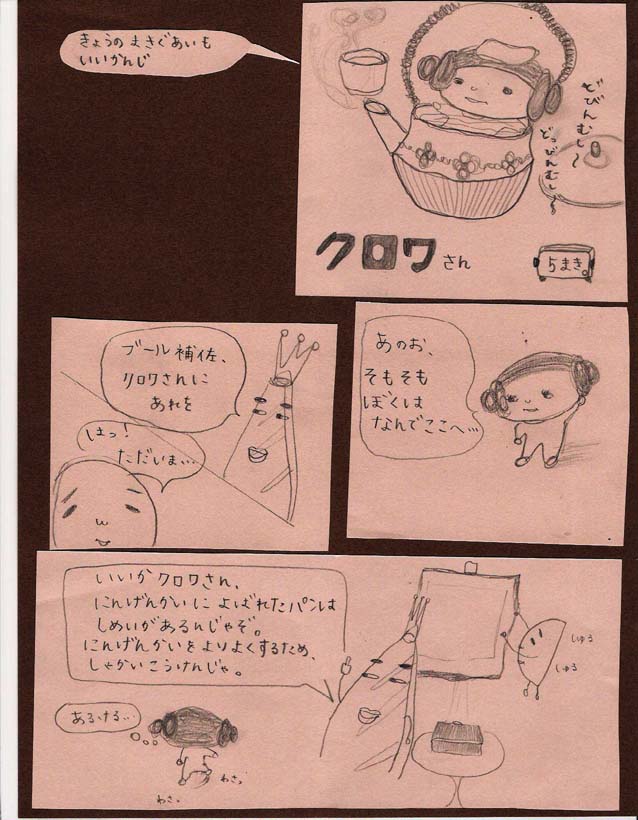 きょうのまきぐあいも
いいかんじ
どびんむし〜
どっびんむし〜
クロワさん
5まき。
あのお、
そもそも
ぼくは
なんでここへ…
ブール補佐、
クロワさんに
あれを
はっ!
ただいま…
いいかクロワさん、
にんげんかいによばれたパンは
しめいがあるんじゃぞ。
にんげんかいをよりよくするため、
しゃかいこうけんじゃ。
しゅる
しゅる
あるける…
わさっ
わさっ